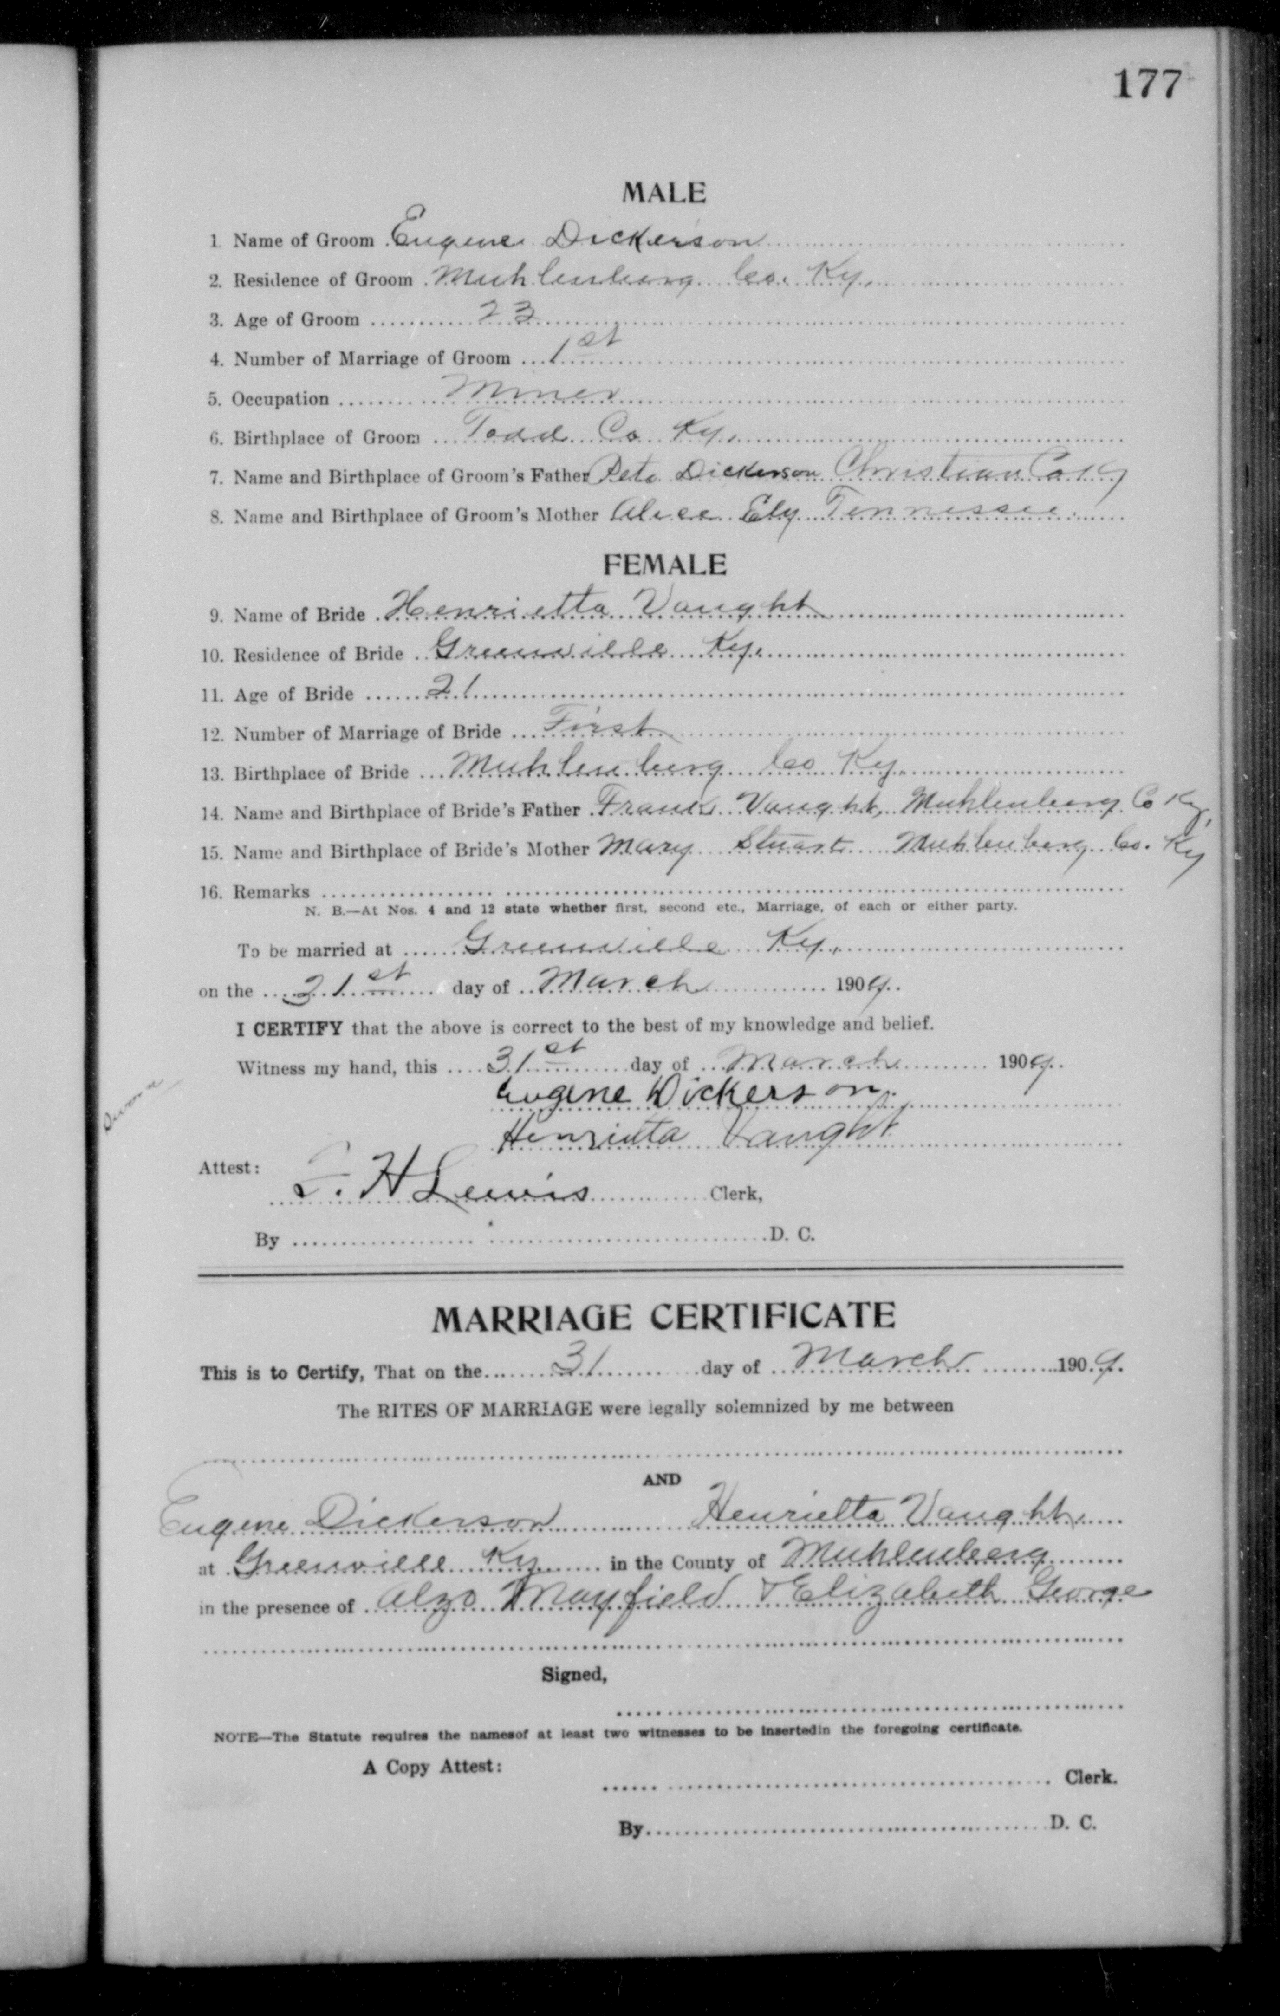 177
MALE
1. Name of Groom Eugene Dickerson
2. Residence of Groom Muhlenberg Co. Ky.
3. Age of Groom 23
4. Number of Marriage of Groom 1st
5. Occupation Miner
6. Birthplace of Groom Todd Co Ky.
7. Name and Birthplace of Groom's Father Pete Dickerson Christian Co Ky
8. Name and Birthplace of Groom's Mother Alice Ely Tennessee
FEMALE
9. Name of Bride Henrietta Vaught
10. Residence of Bride Greenville Ky.
11. Age of Bride 21
12. Number of Marriage of Bride First
13. Birthplace of Bride Muhlenberg Co Ky.
14. Name and Birthplace of Bride's Father Frank Vaught, Muhlenberg Co Ky,
15. Name and Birthplace of Bride's Mother Mary Stuart Muhlenberg Co. Ky
16. Remarks
N. B.—At Nos. 4 and 12 state whether first, second etc., Marriage, of each or either party.
To be married at Greenville Ky.
on the 31st day of March 1909.
I CERTIFY that the above is correct to the best of my knowledge and belief.
Witness my hand, this 31st day of March 1909.
Eugene Dickerson.
Henrietta Vaught
Attest:
H Lewis Clerk,
By D. C.
MARRIAGE CERTIFICATE
This is to Certify, That on the 31 day of March 1909.
The RITES OF MARRIAGE were legally solemnized by me between
AND
Eugene Dickerson Henrietta Vaught
at Greenville Ky in the County of Muhlenberg
in the presence of Alzo Mayfield & Elizabeth George
Signed,
NOTE—The Statute requires the namesof at least two witnesses to be insertedin the foregoing certificate.
A Copy Attest:
Clerk.
By D. C.